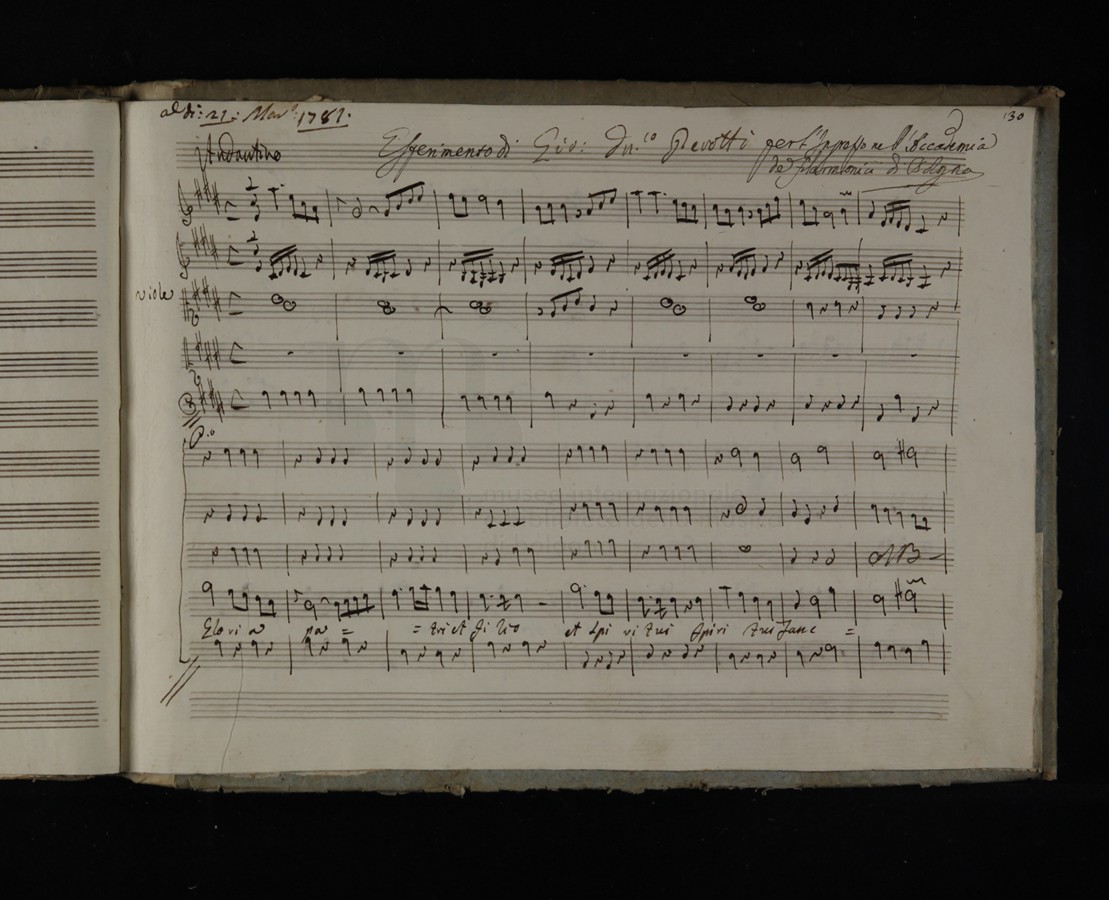 al di: 21: Mar: 1781.
130
Andantino
Esperimento di Gio: Dn.co Devotti per l'Ingresso nell'Accademia
de Filarmonici di Bologna
viole
P.o
Gloria pa = = tri et filio et spiritui spiritui sanc =